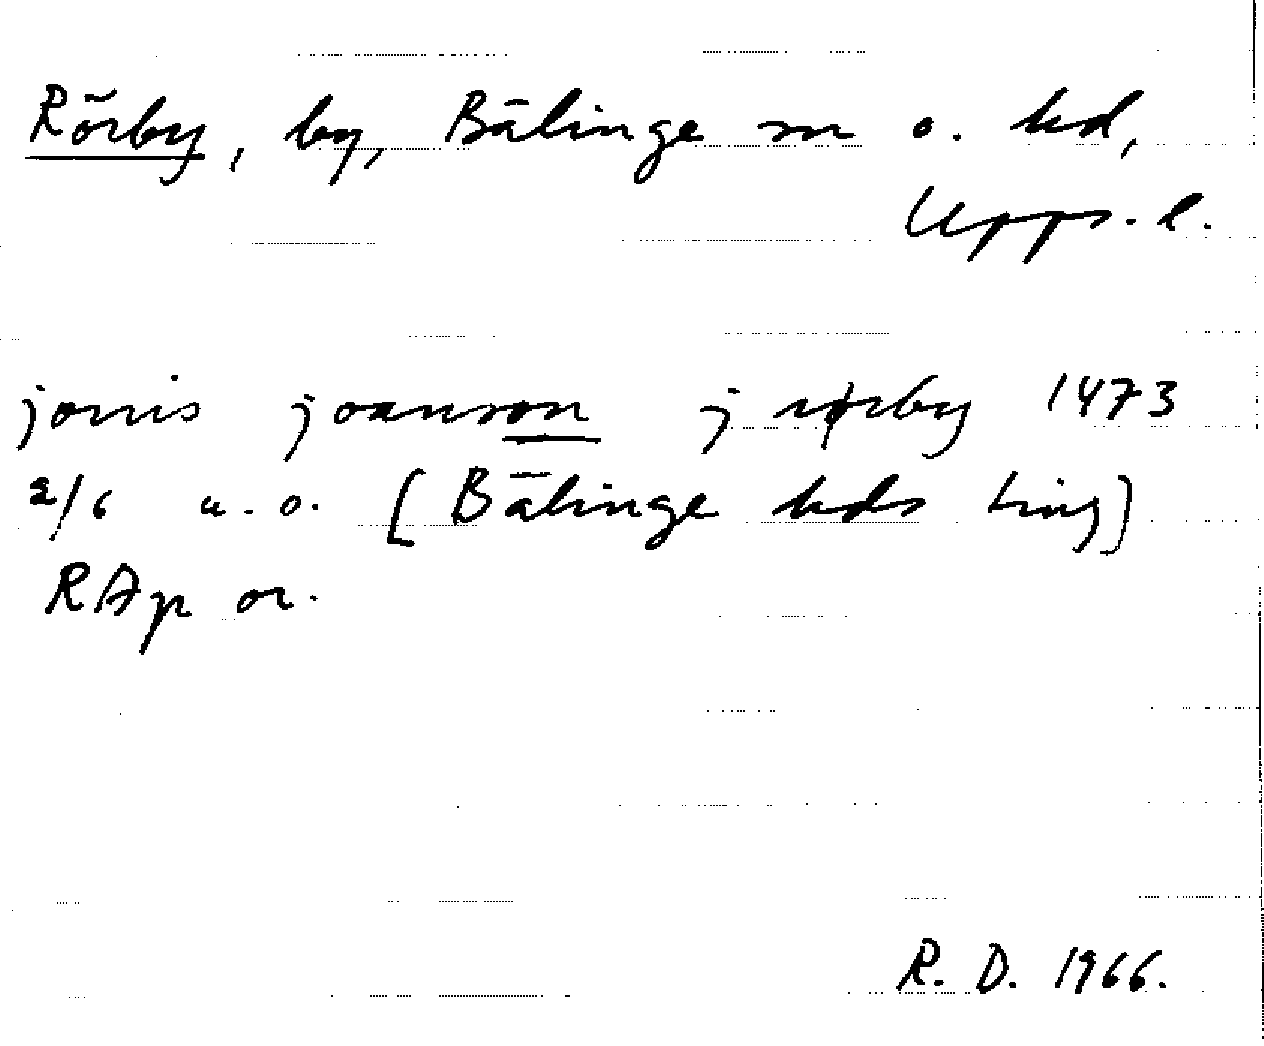 Rörby, by, Bälinge sn o. hd,
Upps. l.
jønis joansson j rørby 1473
2/6 u. o. [Bälinge hds ting]
RAp or.
R. D. 1966.